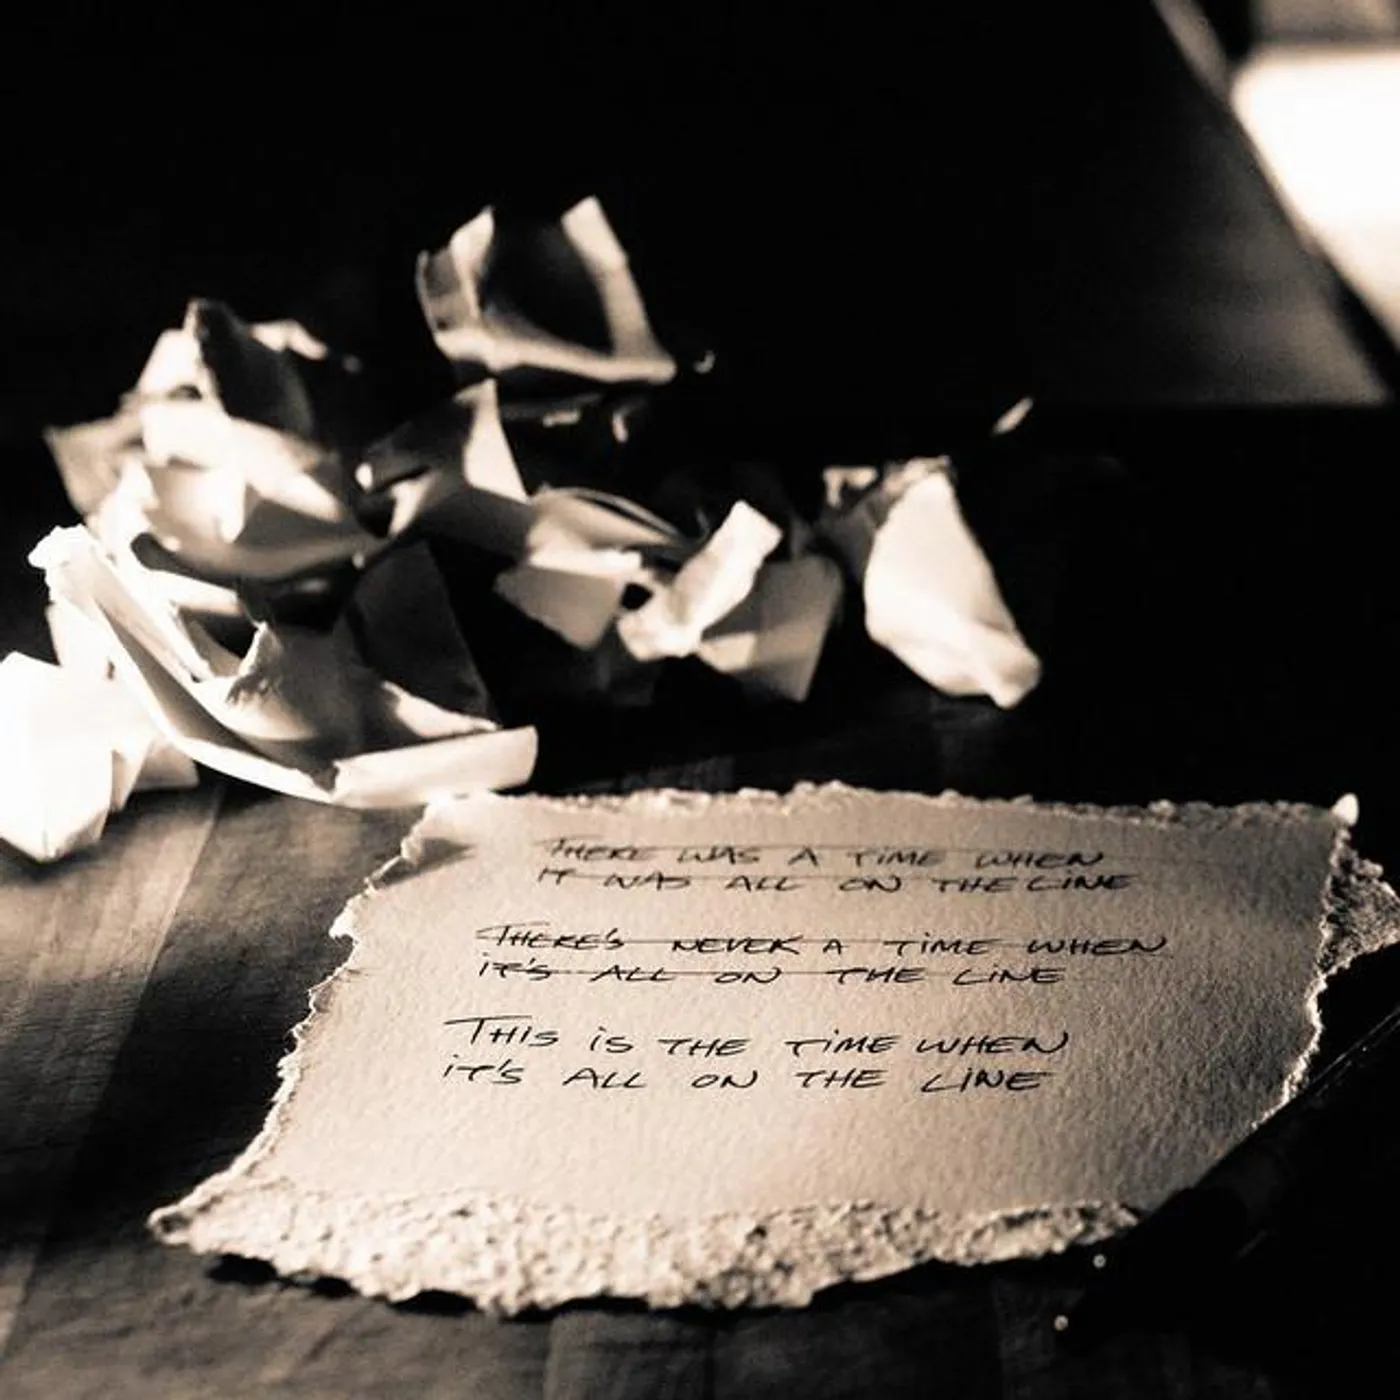 THERE WAS A TIME WHEN
IT WAS ALL ON THE LINE
THERE'S NEVER A TIME WHEN
IT'S ALL ON THE LINE
THIS IS THE TIME WHEN
IT'S ALL ON THE LINE